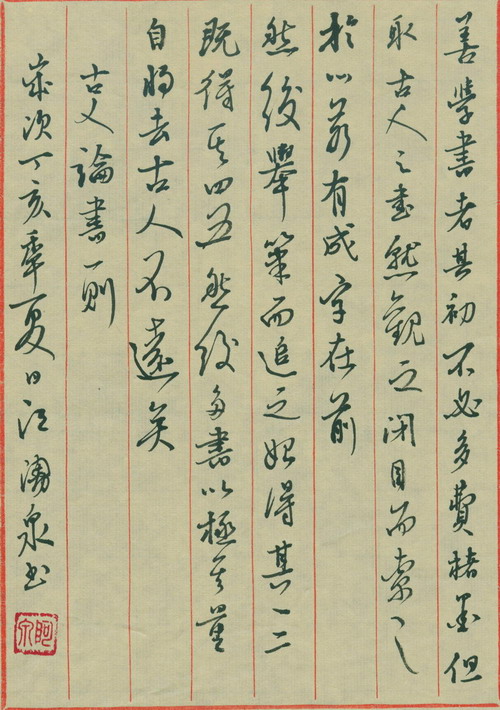 善學書者其初不必多費楮墨但
取古人之書熟觀之閉目而索之
於心若有成字在前
然後舉筆而追之始得其一二
既得其四五然後多書以極其量
自將去古人不遠矣
古人論書一則
歲次丁亥年夏日江湧泉書